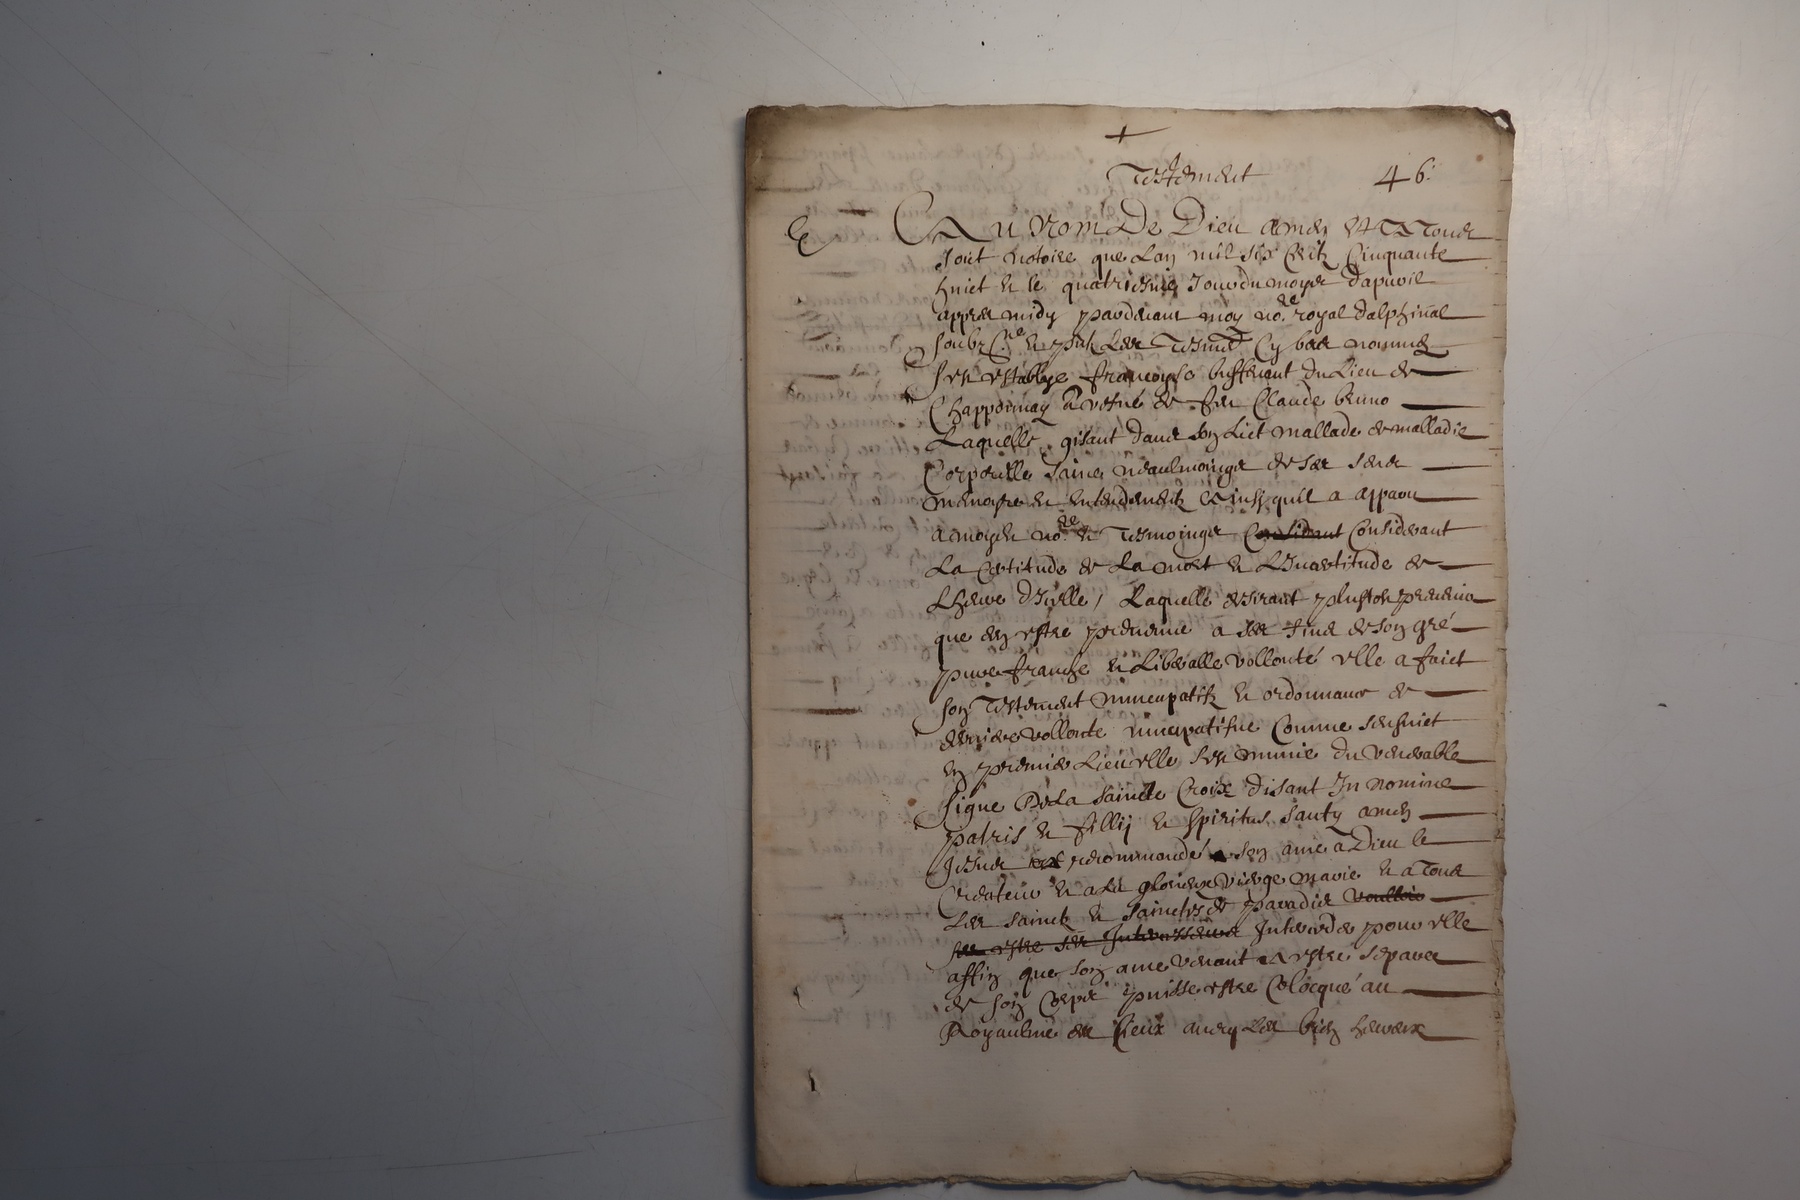 +
Testement 46.
E Au nom De Dieu amen et A Tous
soit notoire que Lan mil six centz Cinquante
huict et le quatriesme Jour du moys dapvril
appres midy pardevant moy no.re royal dalphinal
soubz.ne et pnts Les Tesmt Cy bas nommes
sest establye francoyse buffevant du Lieu de
Chapponnay vefve de feu Claude bruno
Laquelle gisant dans son Lict mallade de malladie
Corporelle saine neaulmoings de ses sens
memoyre et entendementz Ainsy quil a apparu
a moydt no.re et Tesmoings Considerant Considerant
La Certitude de La mort et LIncertitude de
Lheure dIcelle / Laquelle desirant plustost prevenir
que den estre prevenue a ses fins de son gré
pure franche et Liberalle vollonté elle a faict
son Testement nuncupatifz et ordonnance de
derniere vollonte nuncupatifve Comme sensuict
En premier Lieu elle sest munie du venerable
signe De La saincte Croix disant In nomine
patris et fillij et spiritus santy amen
Jesus recommandé son ame a Dieu le
Createur et a La glorieuse vierge marie et a Tous
Les sainctz et sainctes de paradis voulloir
estre ses Intercesseurs Interceder pour elle
affin que son ame venant A estre separee
de son Corps puisse estre Colocqué au
Royaulme des Cieux avecq Les bien heureux